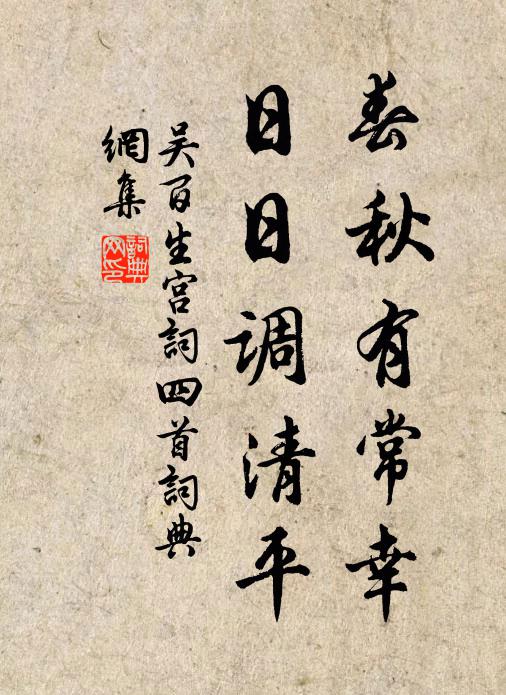 春秋有常幸
日日調清平
吴百生宫詞四首詞典
網集
詞典网印